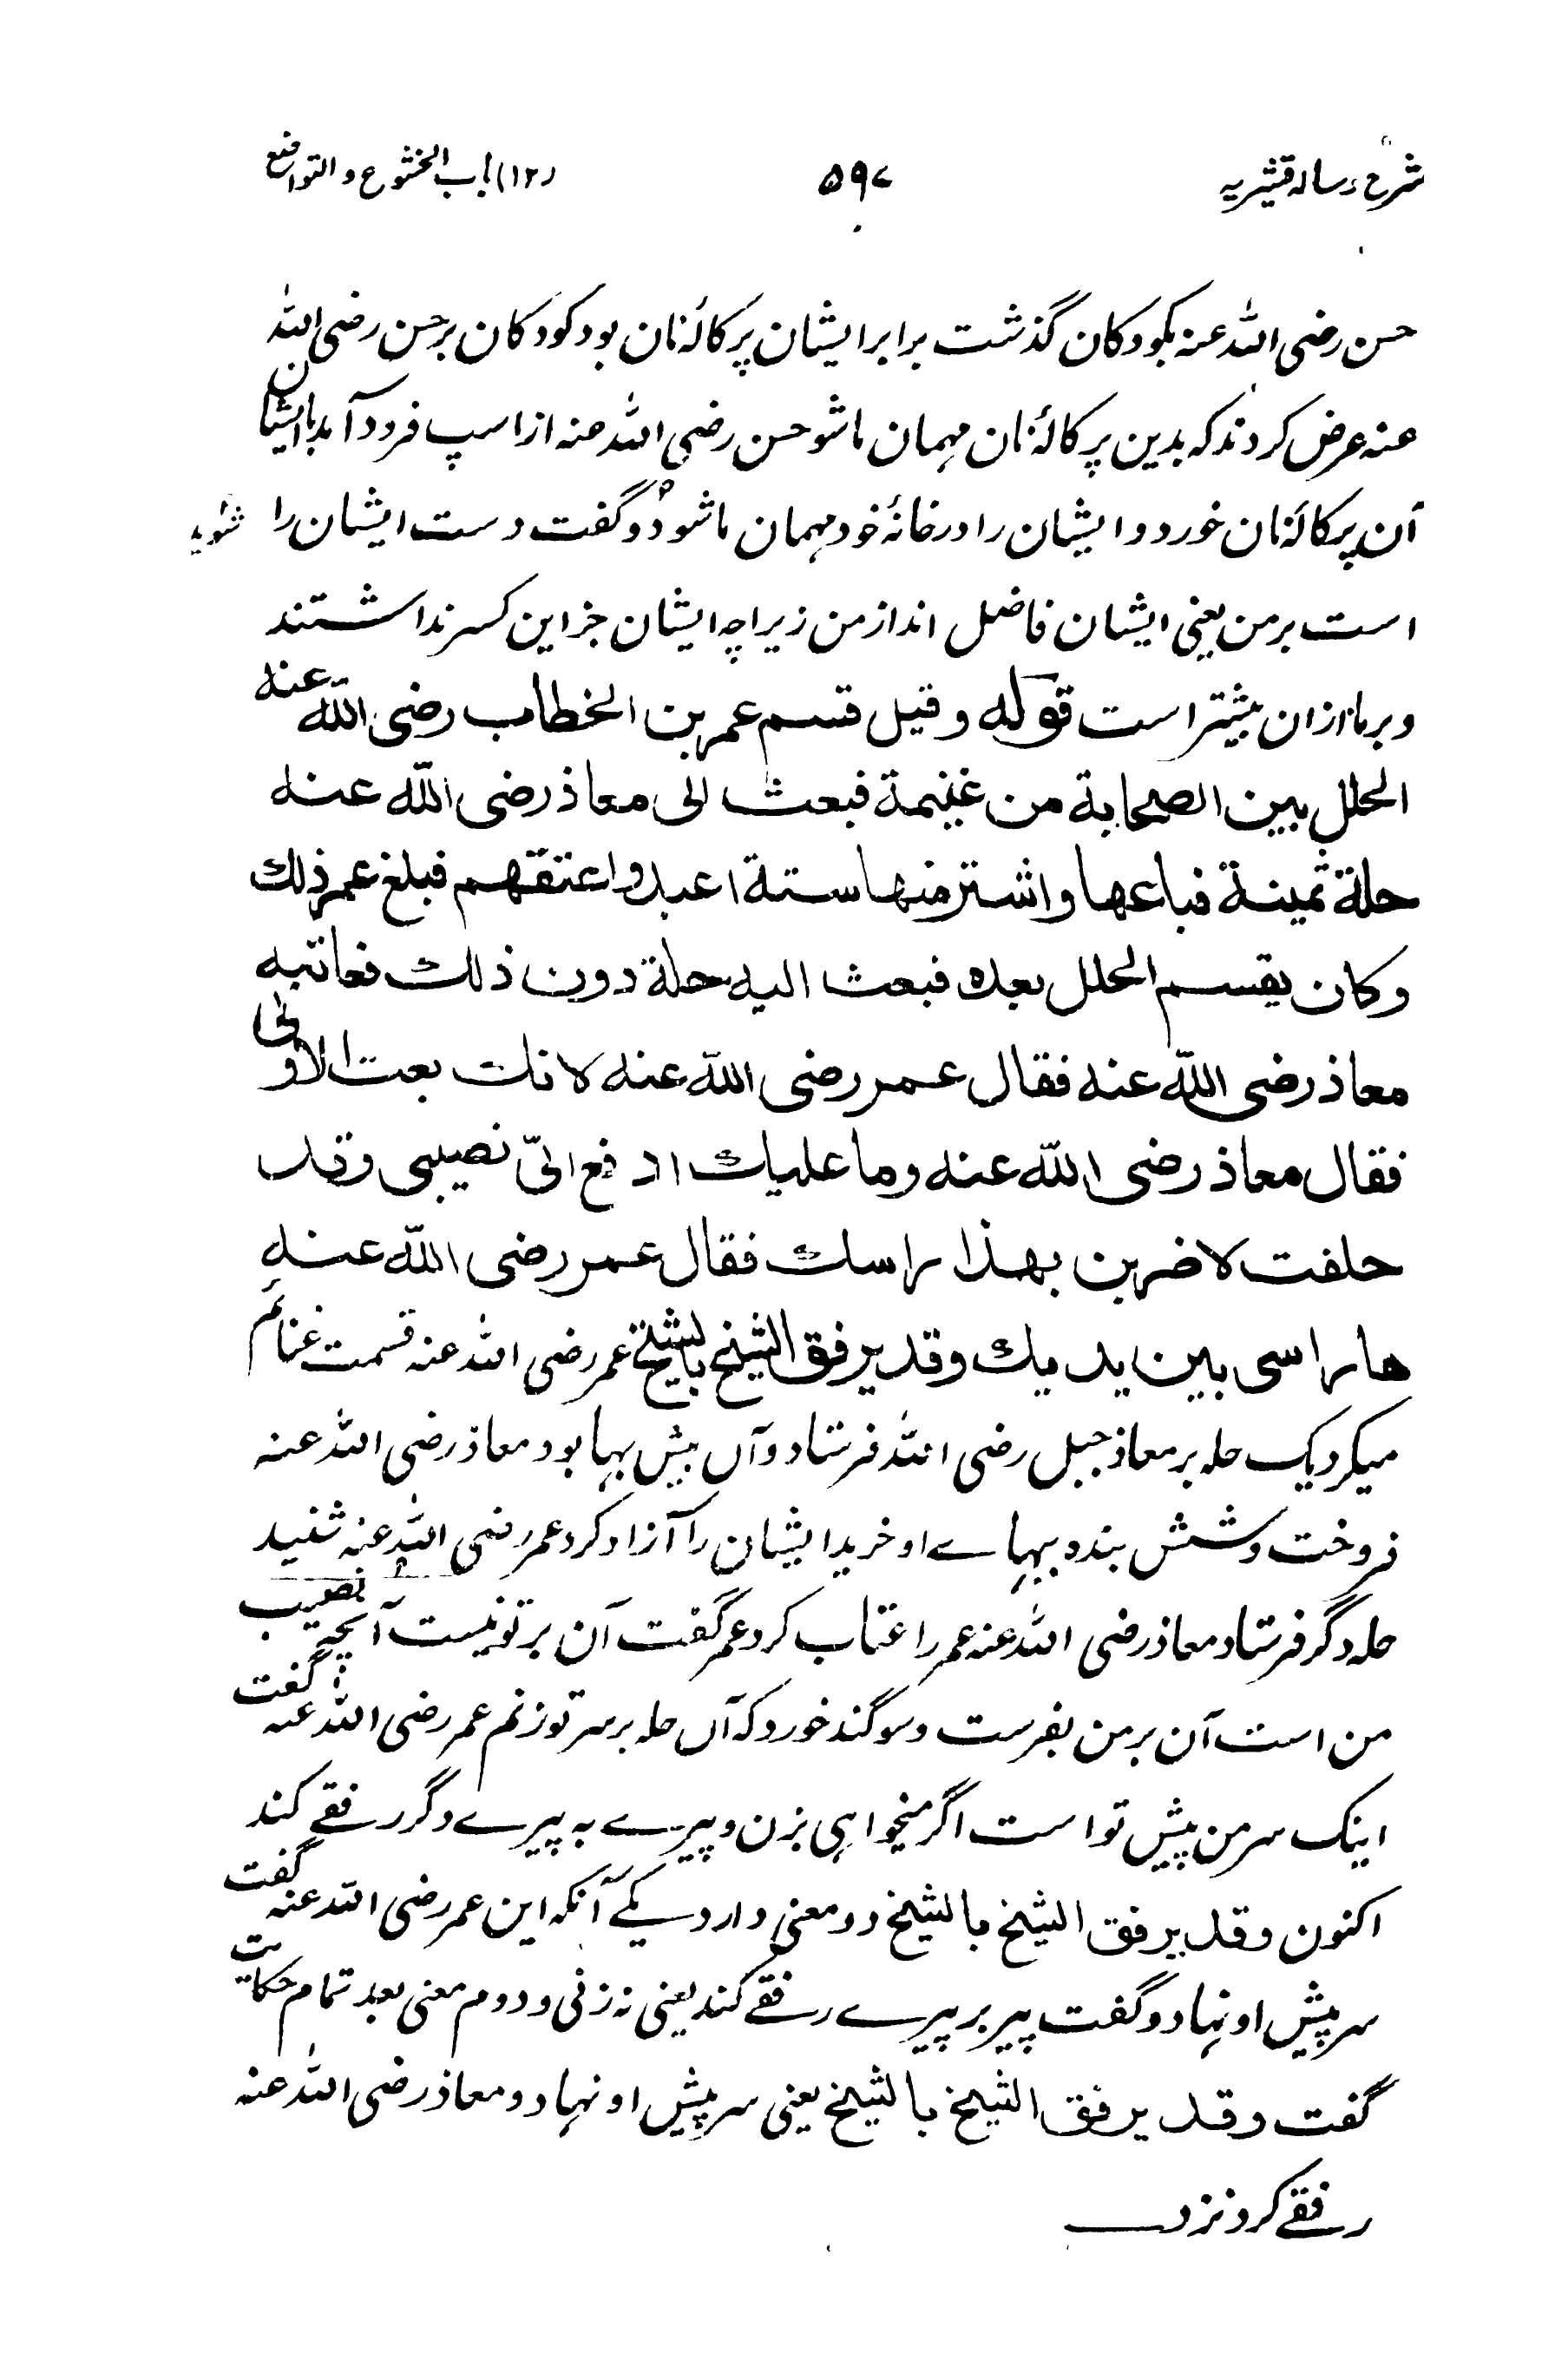 شرح رساله قشیریه ۵۹۷ (۱۲) باب الخشوع والتواضع
حسن رضی الله عنه بکودکان گذشت برابر ایشان پرکالۀ نان بود کودکان بر حسن رضی الله
عنه عرض کردند که بدین پرکالۀ نان مهمان ما شو حسن رضی الله عنه از اسپ فرود آمد با ایشان
آن پرکالۀ نان خورد و ایشان را در خانۀ خود مهمان ما شود و گفت دست ایشان را شوید
است بر من یعنی ایشان فاضل اند از من زیراچه ایشان جز این کسر نداشتند
و بر ما ازان بیشتر است قوله وقیل قسم عمر بن الخطاب رضی الله عنه
الحلل بین الصحابة من غنیمة فبعث الی معاذ رضی الله عنه
حلة ثمینة فباعها واشتر منها ستة اعبد واعتقهم فبلغ عمر ذلك
وکان یقسم الحلل بعده فبعث الیه حلة دون ذلك فعاتبه
معاذ رضی الله عنه فقال عمر رضی الله عنه لانك بعت الاولی
فقال معاذ رضی الله عنه وما علیك ادفع الیّ نصیبی وقد
حلفت لاضربن بهذا راسك فقال عمر رضی الله عنه
ها راسی بین یدیك وقد یرفق الشیخ بالشیخ عمر رضی الله عنه قسمت غنائم
میکرد یک حله بر معاذ جبل رضی الله فرستاد و آں بیش بها بود معاذ رضی الله عنه
فروخت و شش بنده ببهاے او خرید ایشان را آزاد کرد عمر رضی الله عنه شنید
حله دگر فرستاد معاذ رضی الله عنه عمر را عتاب کرد عمر گفت آن بر تو نیست آنچه نصیب
من است آن بر من بفرست و سوگند خورد که آں حله بر سر تو زنم عمر رضی الله عنه گفت
اینک سر من پیش تو است اگر میخواهی بزن و پیرے به پیرے دگر رفقے کند
اکنون وقد یرفق الشیخ بالشیخ دو معنی دارد یکے آنکه این عمر رضی الله عنه گفت
سر پیش او نهاد و گفت پیر بر پیرے رفقے کند یعنی نه زنی و دوم معنی بعد تمام حکایت
گفت وقد یرفق الشیخ بالشیخ یعنی سر پیش او نهاد و معاذ رضی الله عنه
رفقے کرد نزد